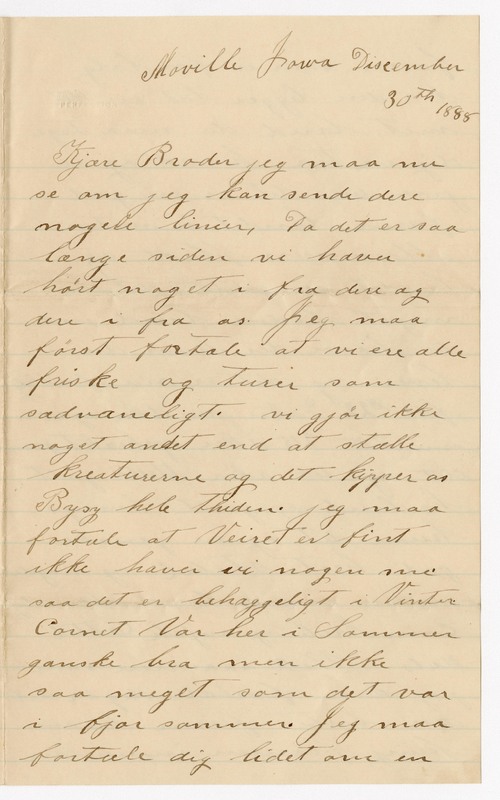 Moville Jowa Discember
30th 1888
Kjære Broder jeg maa nu
se om jeg kan sende dere
nogele linier, Da det er saa
længe siden vi haver
hørt noget i fra dere og
dere i fra os. Jeg maa
først fortæle at vi ere alle
friske og turer som
sædvaneligt. vi gjør ikke
noget andet end at stælle
kreaturerne og det kipper os
Bysy hele thiden. jeg maa
fortæle at Veiret er fint
ikke haver vi nogen
saa det er behaggeligt i Vinter
Cornet Var her i Sommer
ganske bra men ikke
saa meget som det var
i fjor sommer. Jeg maa
fortæle dig lidet om en